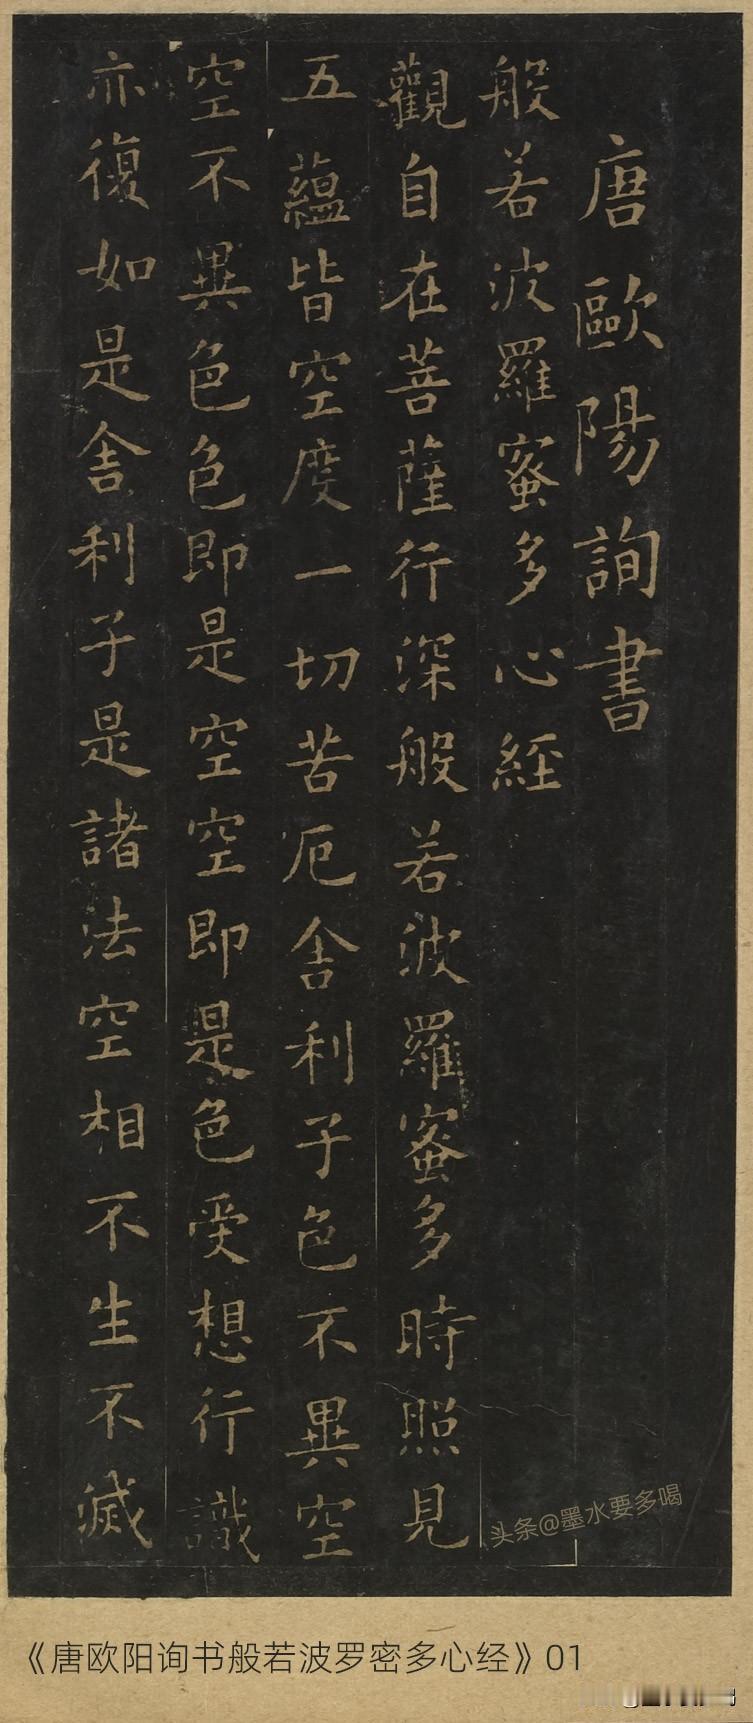 唐歐陽詢書
般若波羅蜜多心經
觀自在菩薩行深般若波羅蜜多時照見
五蘊皆空度一切苦厄舍利子色不異空
空不異色色即是空空即是色受想行識
亦復如是舍利子是諸法空相不生不滅
头条@墨水要多喝
《唐欧阳询书般若波罗密多心经》01